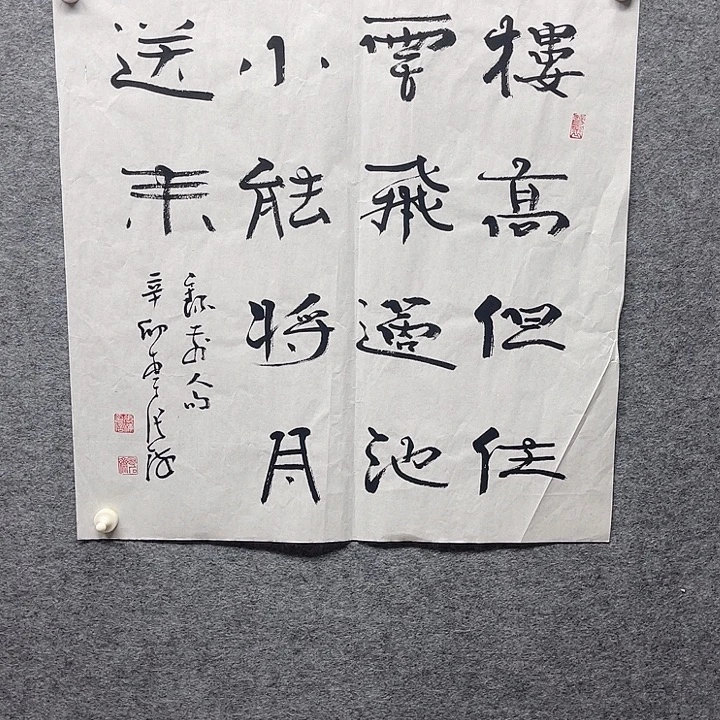 樓高但任
雲飛過池
小能將月
送來
錄人句
辛卯